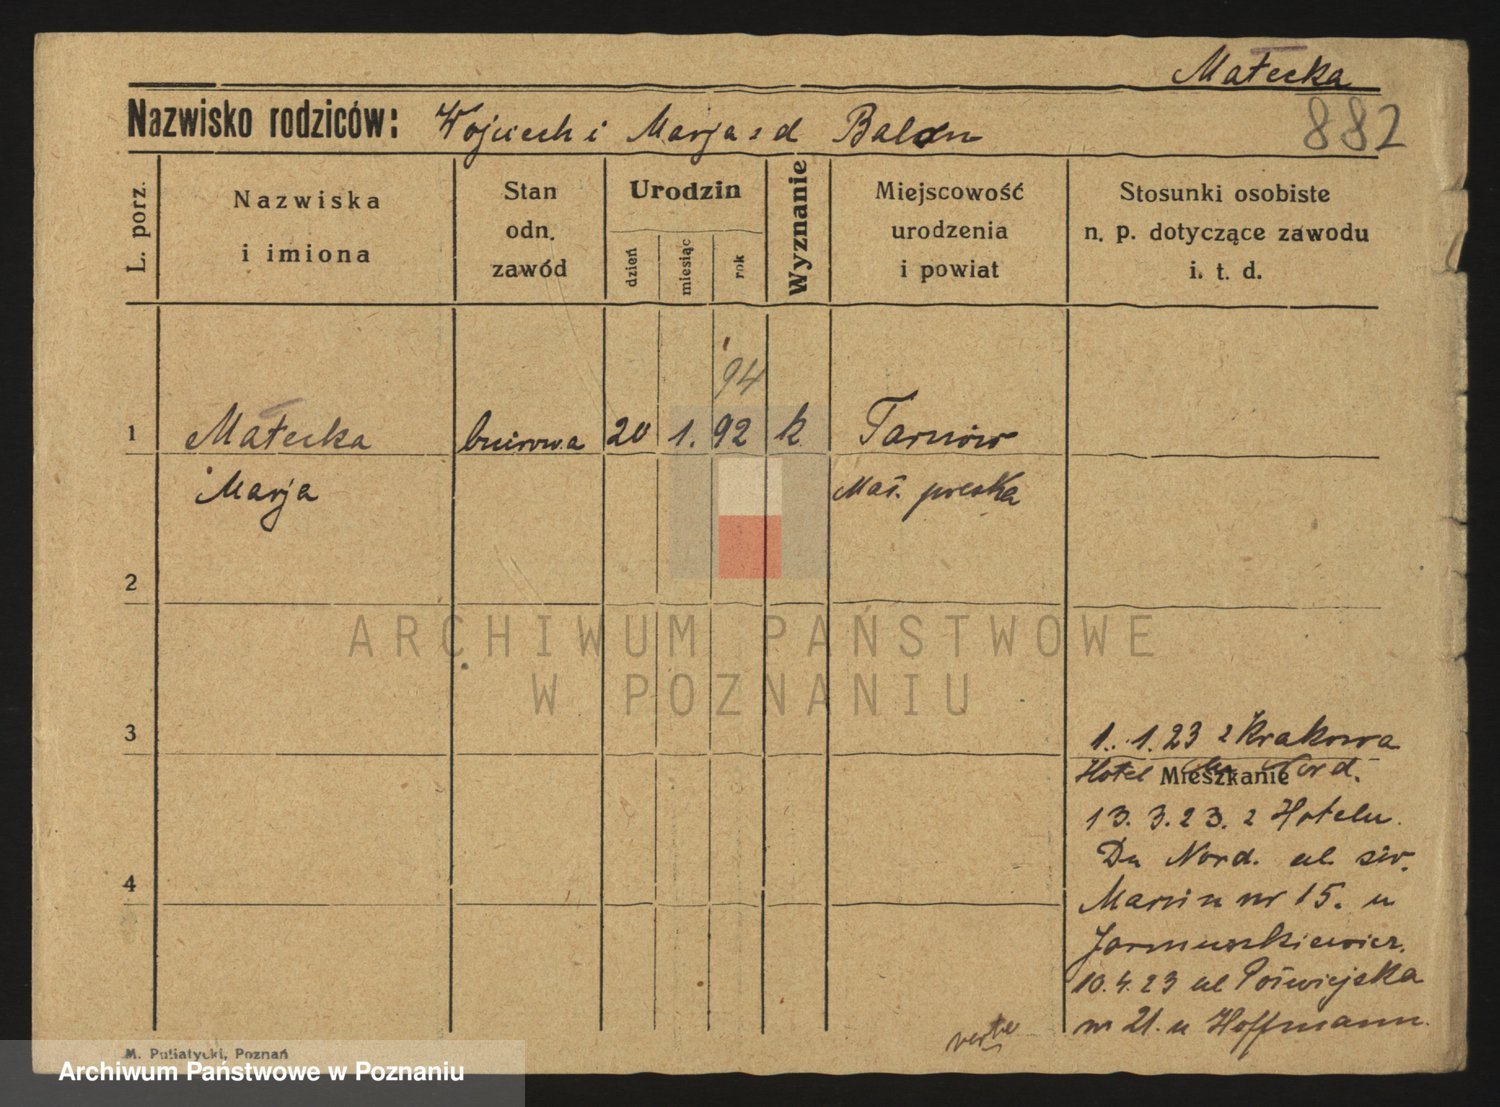 Małecka
882
Nazwisko rodziców: Wojciech i Marja z d Balon
L. porz.
Nazwiska
i imiona
Stan
odn.
zawód
Urodzin
dzień
miesiąc
rok
Wyznanie
Miejscowość
urodzenia
i powiat
Stosunki osobiste
n. p. dotyczące zawodu
i. t. d.
94
1 Małecka biurowa 20 1. 92 k Tarnów
Marja Mał. polska
2
ARCHIWUM PAŃSTWOWE
W POZNANIU
3
1. 1. 23 z Krakowa
Hotel Du Nord.
Mieszkanie
13. 3. 23. z Hotelu
Du Nord. ul. św.
4
Marcin nr 15. u
Jarmuszkiewicz.
10.4.23 ul Pośwjejska
nr 21. u Hoffmann.
verte
M. Putiatycki, Poznań
Archiwum Państwowe w Poznaniu